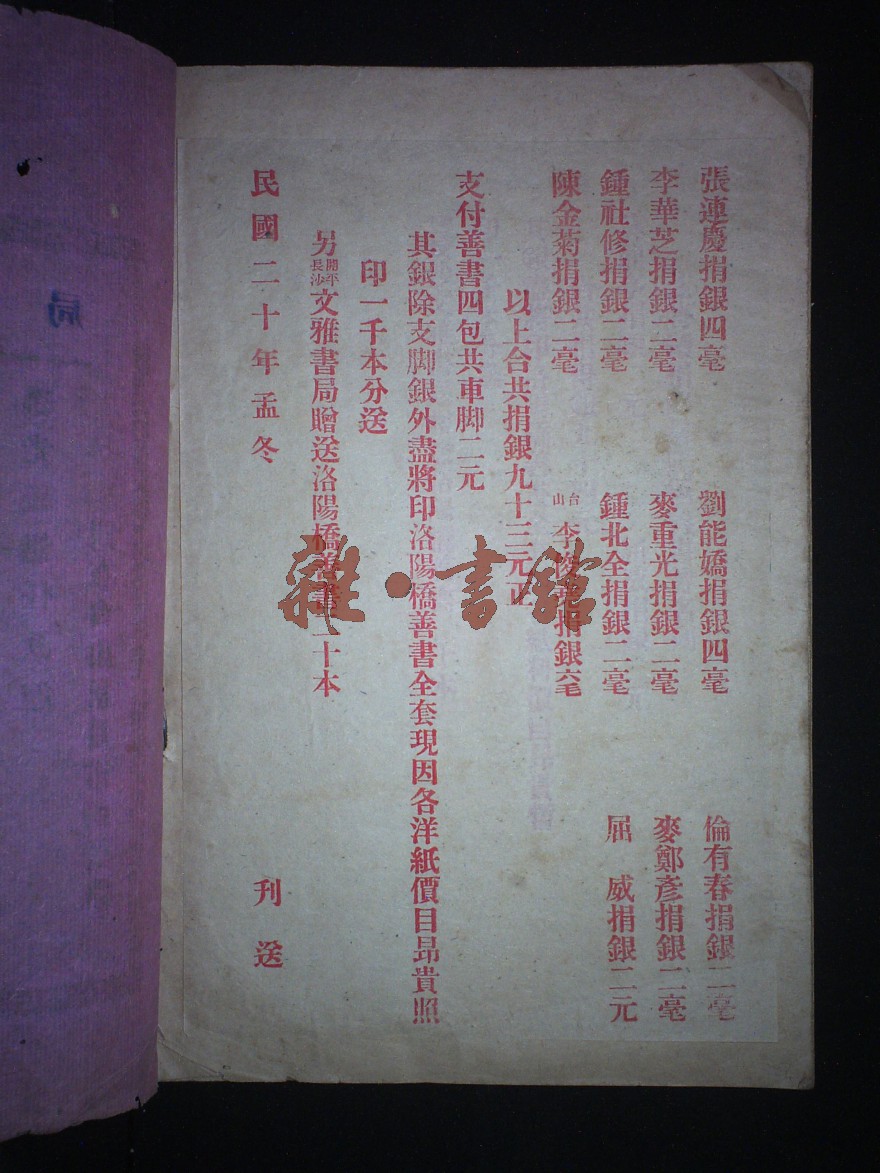 張連慶捐銀四毫 劉能嬌捐銀四毫 倫有春捐銀二毫
李華芝捐銀二毫 麥重光捐銀二毫 麥鄭彥捐銀二毫
鍾社修捐銀二毫 鍾北全捐銀二毫 屈 威捐銀二元
陳金菊捐銀二毫 台山 李俊 捐銀六毛
以上合共捐銀九十三元正
支付善書四包共車脚二元
其銀除支脚銀外盡將印洛陽橋善書全套現因各洋紙價目昂貴照
印一千本分送
另開平長沙文雅書局贈送洛陽橋善書二十本
民國二十年孟冬 刋送
雜·書館
局